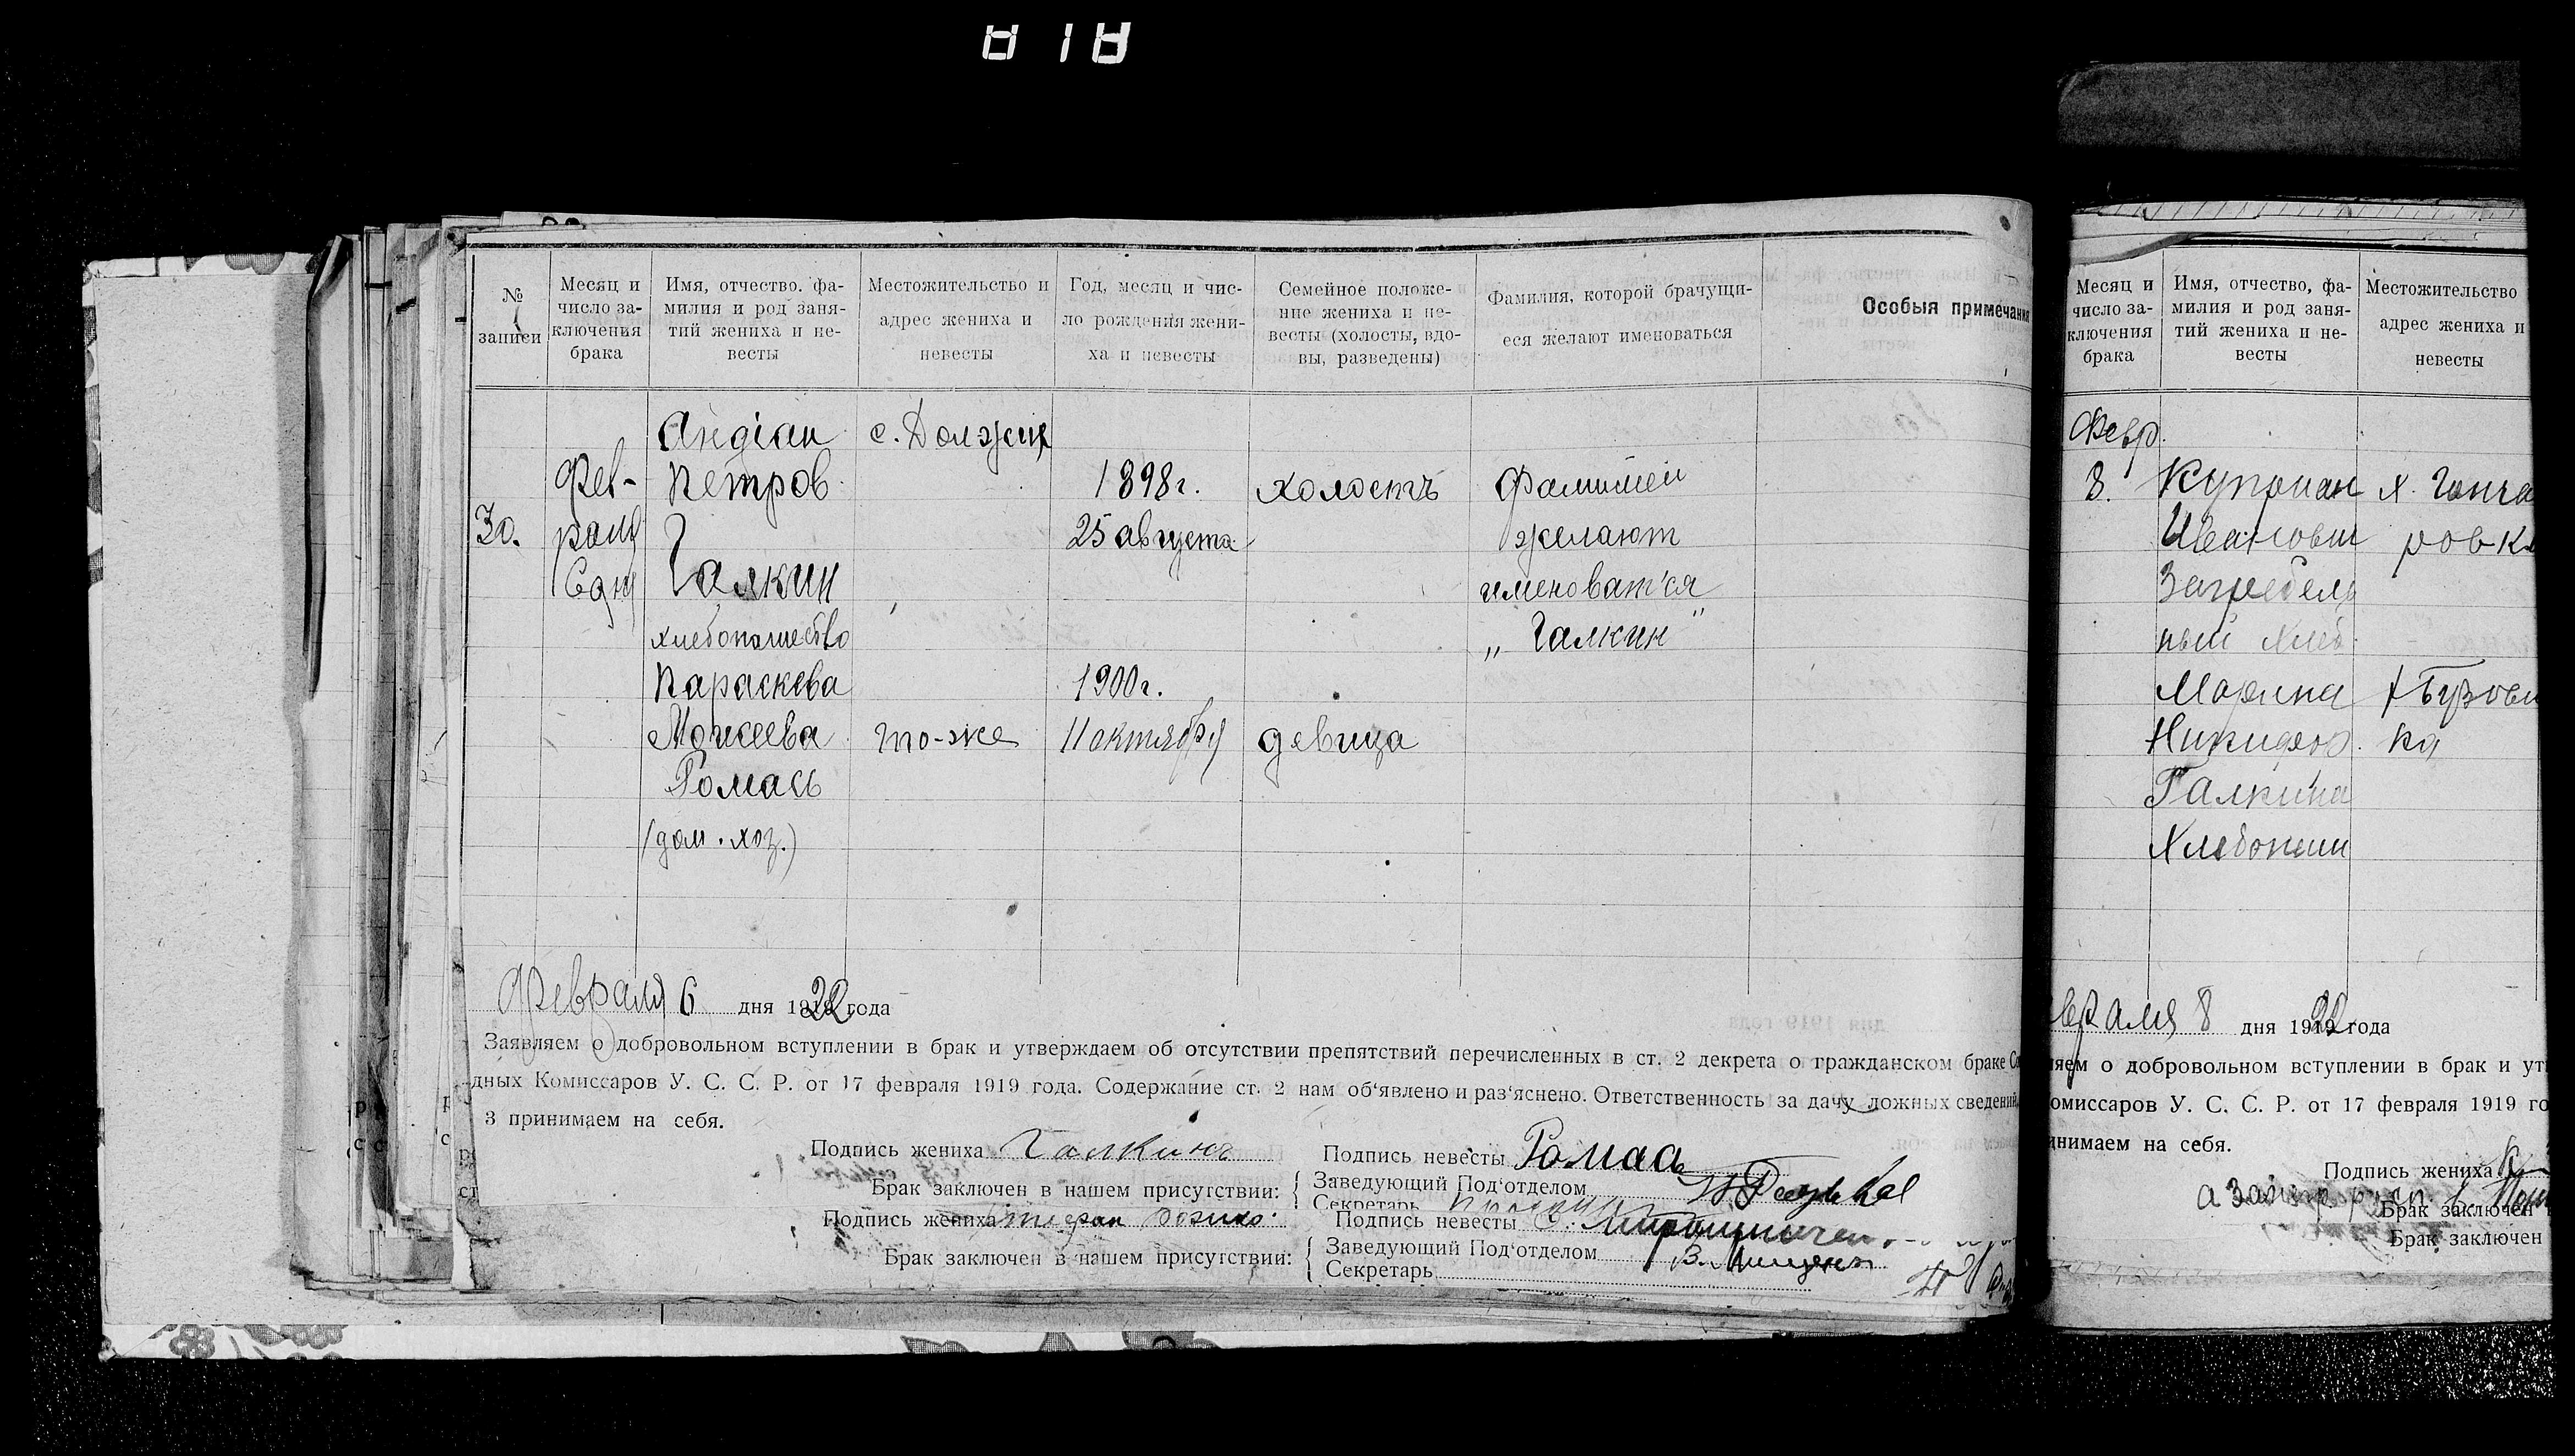 №
записи
Месяц и
число за-
ключения
брака
Имя, отчество. фа-
милия и род заня-
тий жениха и не-
весты
Местожительство и
адрес жениха и
невесты
Год, месяц и чис-
ло рождения жени-
ха и невесты
Семейное положе-
ние жениха и не-
весты (холосты, вдо-
вы, разведены)
Фамилия, которой брачущи-
еся желают именоваться
Особыя примечания
30.
Фев-
раля
6 дня
Андіан
Петров
Галкин
хлебопашество
Параскева
Моисеева
Ромась
(дом. хоз.)
с. Должик
то-же
1898г.
25 августа
1900г.
11 октября
холостъ
девица
Фамилией
желают
именоват'ся
„ Галкин"
Февраля 6 дня 1922 года
Заявляем о добровольном вступлении в брак и утверждаем об отсутствии препятствий перечисленных в ст. 2 декрета о гражданском браке
дных Комиссаров У. С. С. Р. от 17 февраля 1919 года. Содержание ст. 2 нам об'явлено и раз'яснено. Ответственность за дачу ложных сведений
3 принимаем на себя.
Подпись жениха Галкинъ
Подпись невесты Ромась
Брак заключен в нашем присутствии:
Заведующий Под'отделом
Секретарь
Подпись жениха
Подпись невесты
Брак заключен в нашем присутствии:
Заведующий Под'отделом
Секретарь
Месяц и
число за-
ключения
брака
Имя, отчество, фа-
милия и род заня-
тий жениха и не-
весты
Местожительство
адрес жениха и
невесты
Февр.
8.
Куприан
Иванович
Загребель
ный хлеб.
Марина
Никифор.
Галкина
Хлебопаш
х. Гонча
ровка
ка
враля 8 дня 1922 года
ляем о добровольном вступлении в брак и ут
омиссаров У. С. С. Р. от 17 февраля 1919 го
инимаем на себя.
Подпись жениха
Брак заключен
Брак заключен